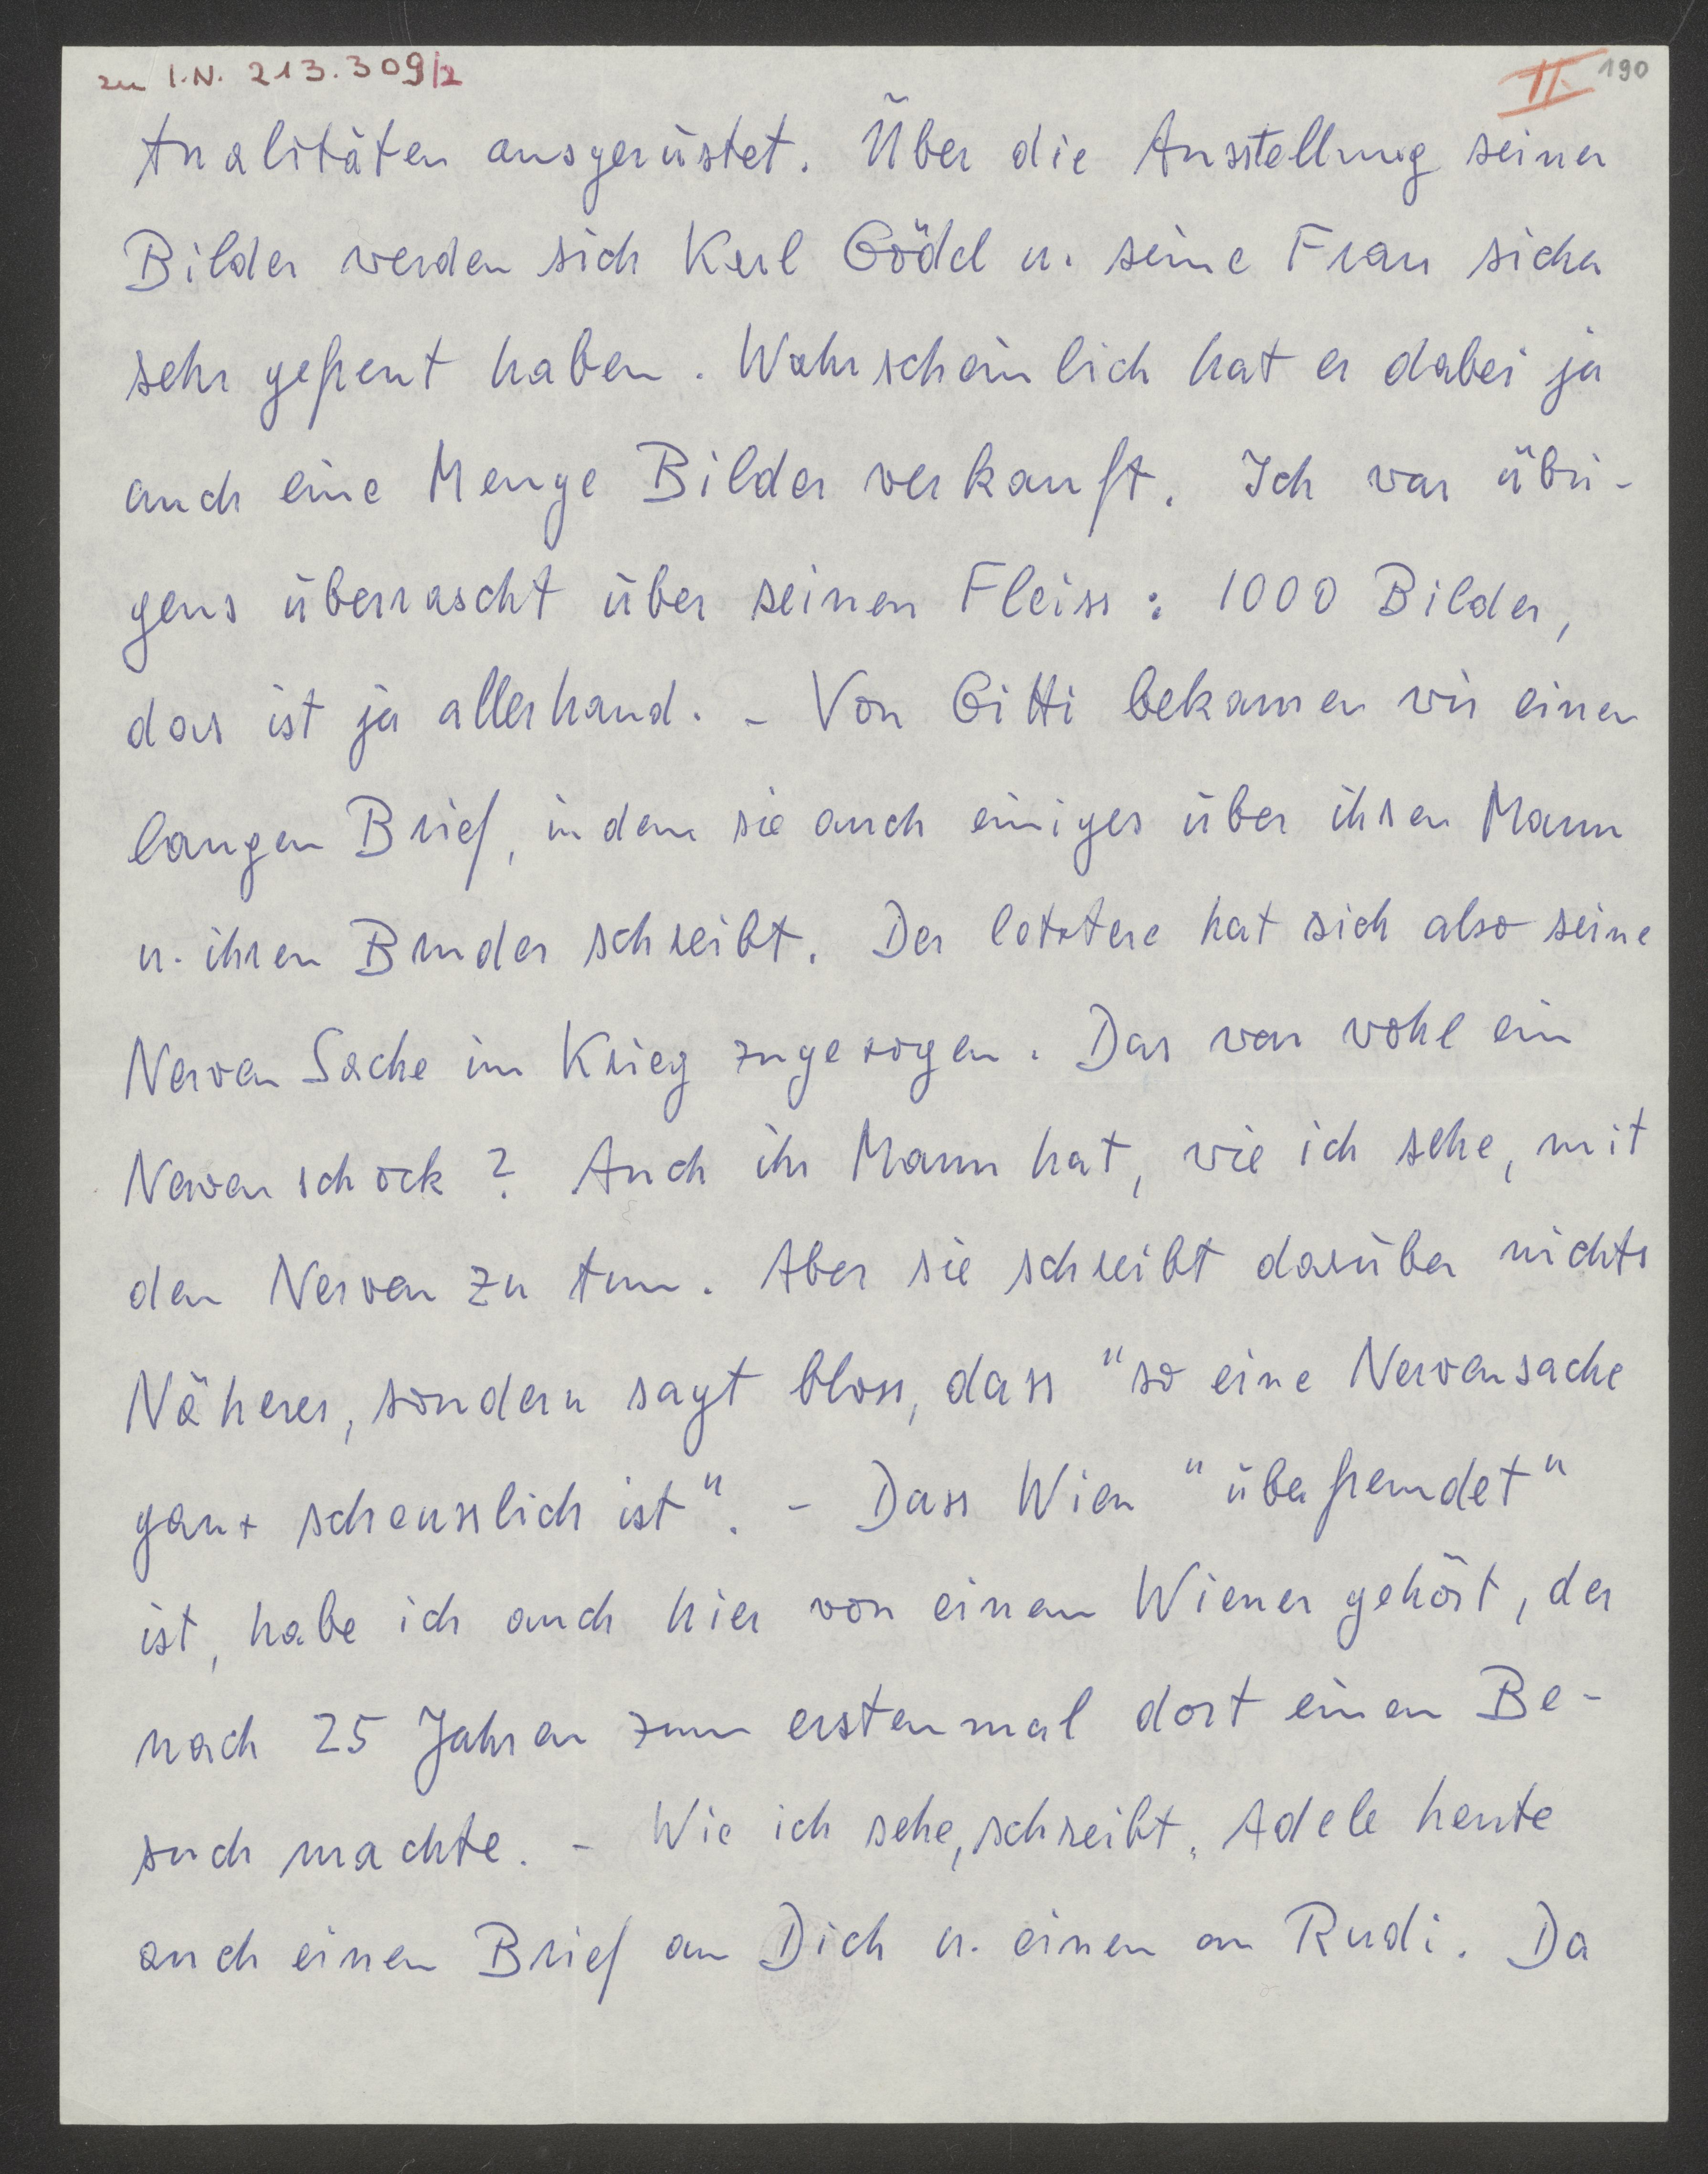 zu I.N. 213.309/2
II. 190
tualitäten ausgerüstet. Über die Ausstellung seiner
Bilder werden sich Karl Gödel u. seine Frau sicher
sehr gefreut haben. Wahrscheinlich hat er dabei ja
auch eine Menge Bilder verkauft. Ich war übri-
gens überrascht über seinen Fleiss: 1000 Bilder,
das ist ja allerhand. - Von Gitti bekamen wir einen
langen Brief, in dem sie auch einiges über ihren Mann
u. ihren Bruder schreibt. Der letztere hat sich also seine
Nerven Sache im Krieg zugezogen. Das war wohl ein
Nervenschock? Auch ihr Mann hat, wie ich sehe, mit
den Nerven zu tun. Aber sie schreibt darüber nichts
Näheres, sondern sagt bloss, dass "so eine Nervensache
ganz scheusslich ist". - Dass Wien "überfremdet"
ist, habe ich auch hier von einem Wiener gehört, der
nach 25 Jahren zum erstenmal dort einen Be-
such machte. - Wie ich sehe, schreibt Adele heute
auch einen Brief an Dich u. einen an Rudi. Da